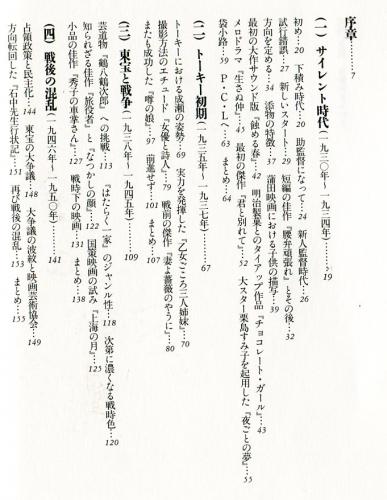 序章……7
(一) サイレント時代(一九三〇年〜一九三四年)……19
初め……20 下積み時代……20 助監督になって……24 新人監督時代……26
試行錯誤……27 新しいスタート……29 短編の佳作『腰弁頑張れ』とその後……32
方向を定める……34 添物の特徴……37 蒲田映画における子供の描写……39
最初の大作サウンド版『蝕める春』……42 明治製菓とのタイアップ作品『チョコレート・ガール』……43
メロドラマ『生さぬ仲』……45 最初の傑作『君と別れて』……52 大スター栗島すみ子を起用した『夜ごとの夢』……55
袋小路……59 P・C・L へ……63 まとめ……64
(二) トーキー初期(一九三五年〜一九三七年)……67
トーキーにおける成瀬の姿勢……69 実力を発揮した『乙女ごころ三人姉妹』……70
撮影方法のエチュード『女優と詩人』……79 戦前の傑作『妻よ薔薇のやうに』……80
またも成功した『噂の娘』……97 『前進せず』……101 まとめ……107
(三) 東宝と戦争(一九三八年〜一九四五年)……109
芸道物『鶴八鶴次郎』への挑戦……113 『はたらく一家』のジャンル性……118 次第に濃くなる戦時色……120
知られざる佳作『旅役者』と『なつかしの顔』……122 国策映画の試み『上海の月』……125
小品の佳作『秀子の車掌さん』……127 戦時下の映画……131 まとめ……138
(四) 戦後の混乱(一九四六年〜一九五〇年)……141
占領政策と民主化……144 東宝の大争議……148 大争議の波紋と映画芸術協会……149
方向転回した『石中先生行状記』……151 再び戦後の混乱……153 まとめ……155